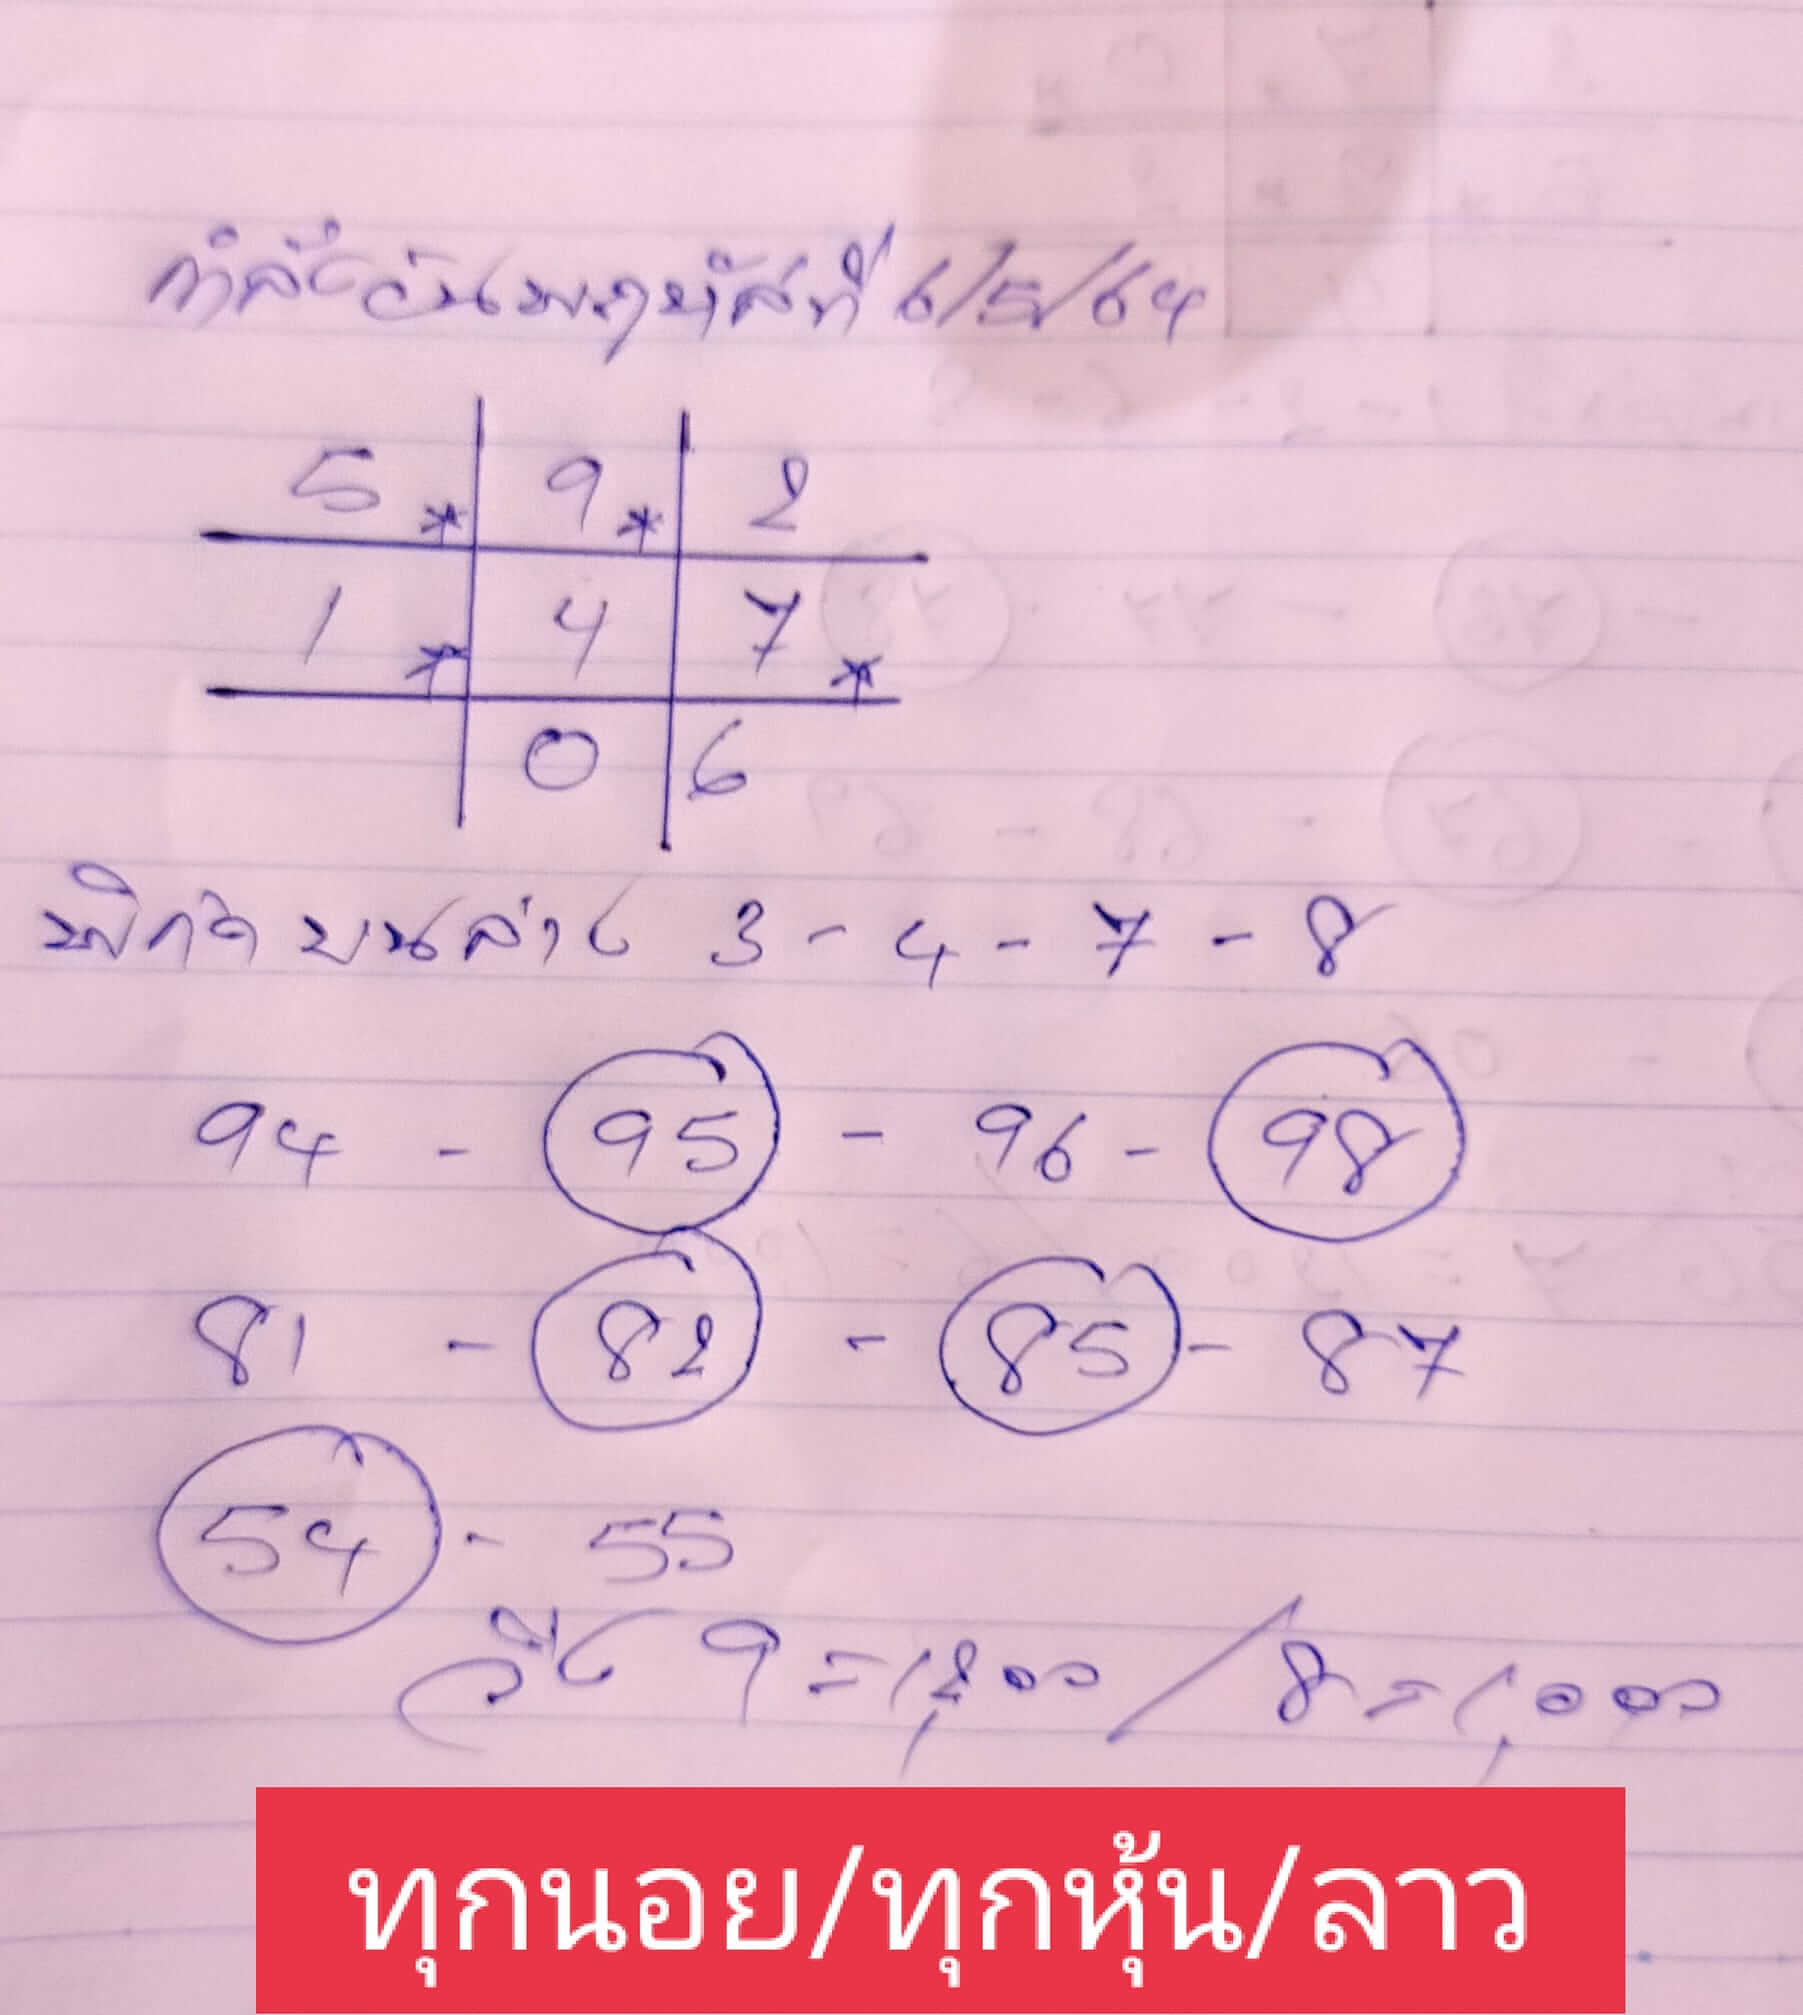 กำลังวันพฤหัสที่ 6/5/64
5 * 9 * 2
1 * 4 7 *
0 6
พิกัด บนล่าง 3 - 4 - 7 - 8
94 - 95 - 96 - 98
81 - 82 - 85 - 87
54 - 55
วิ่ง 9 = 1,200 / 8 = 1,000
ทุกนอย/ทุกหุ้น/ลาว